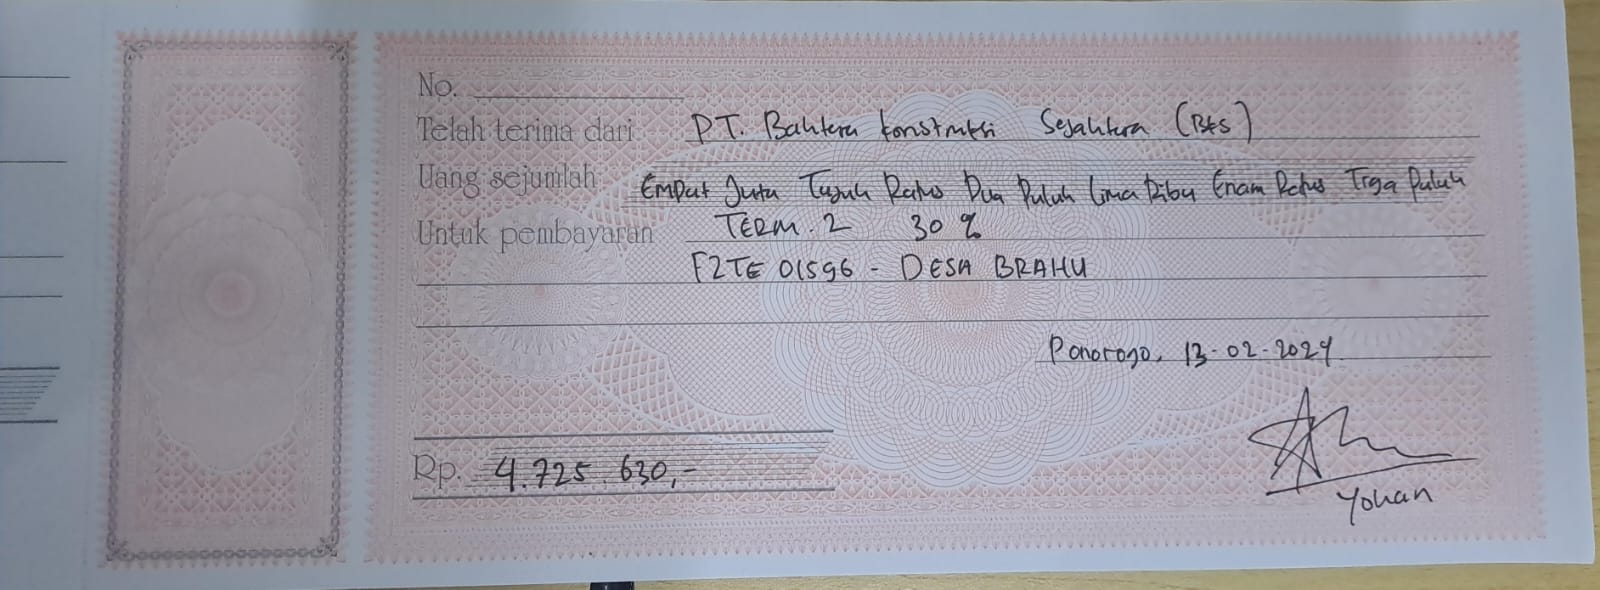 No.
Telah terima dari PT. Bahtera Konstruksi Sejahtera (BKS)
Uang sejumlah Empat Juta Tujuh Ratus Dua Puluh Lima Ribu Enam Ratus Tiga Puluh
Untuk pembayaran TERM. 2 30 %
F2TE 01596 - DESA BRAHU
Ponorogo, 13-02-2024
Rp. 4.725.630,-
Yohan